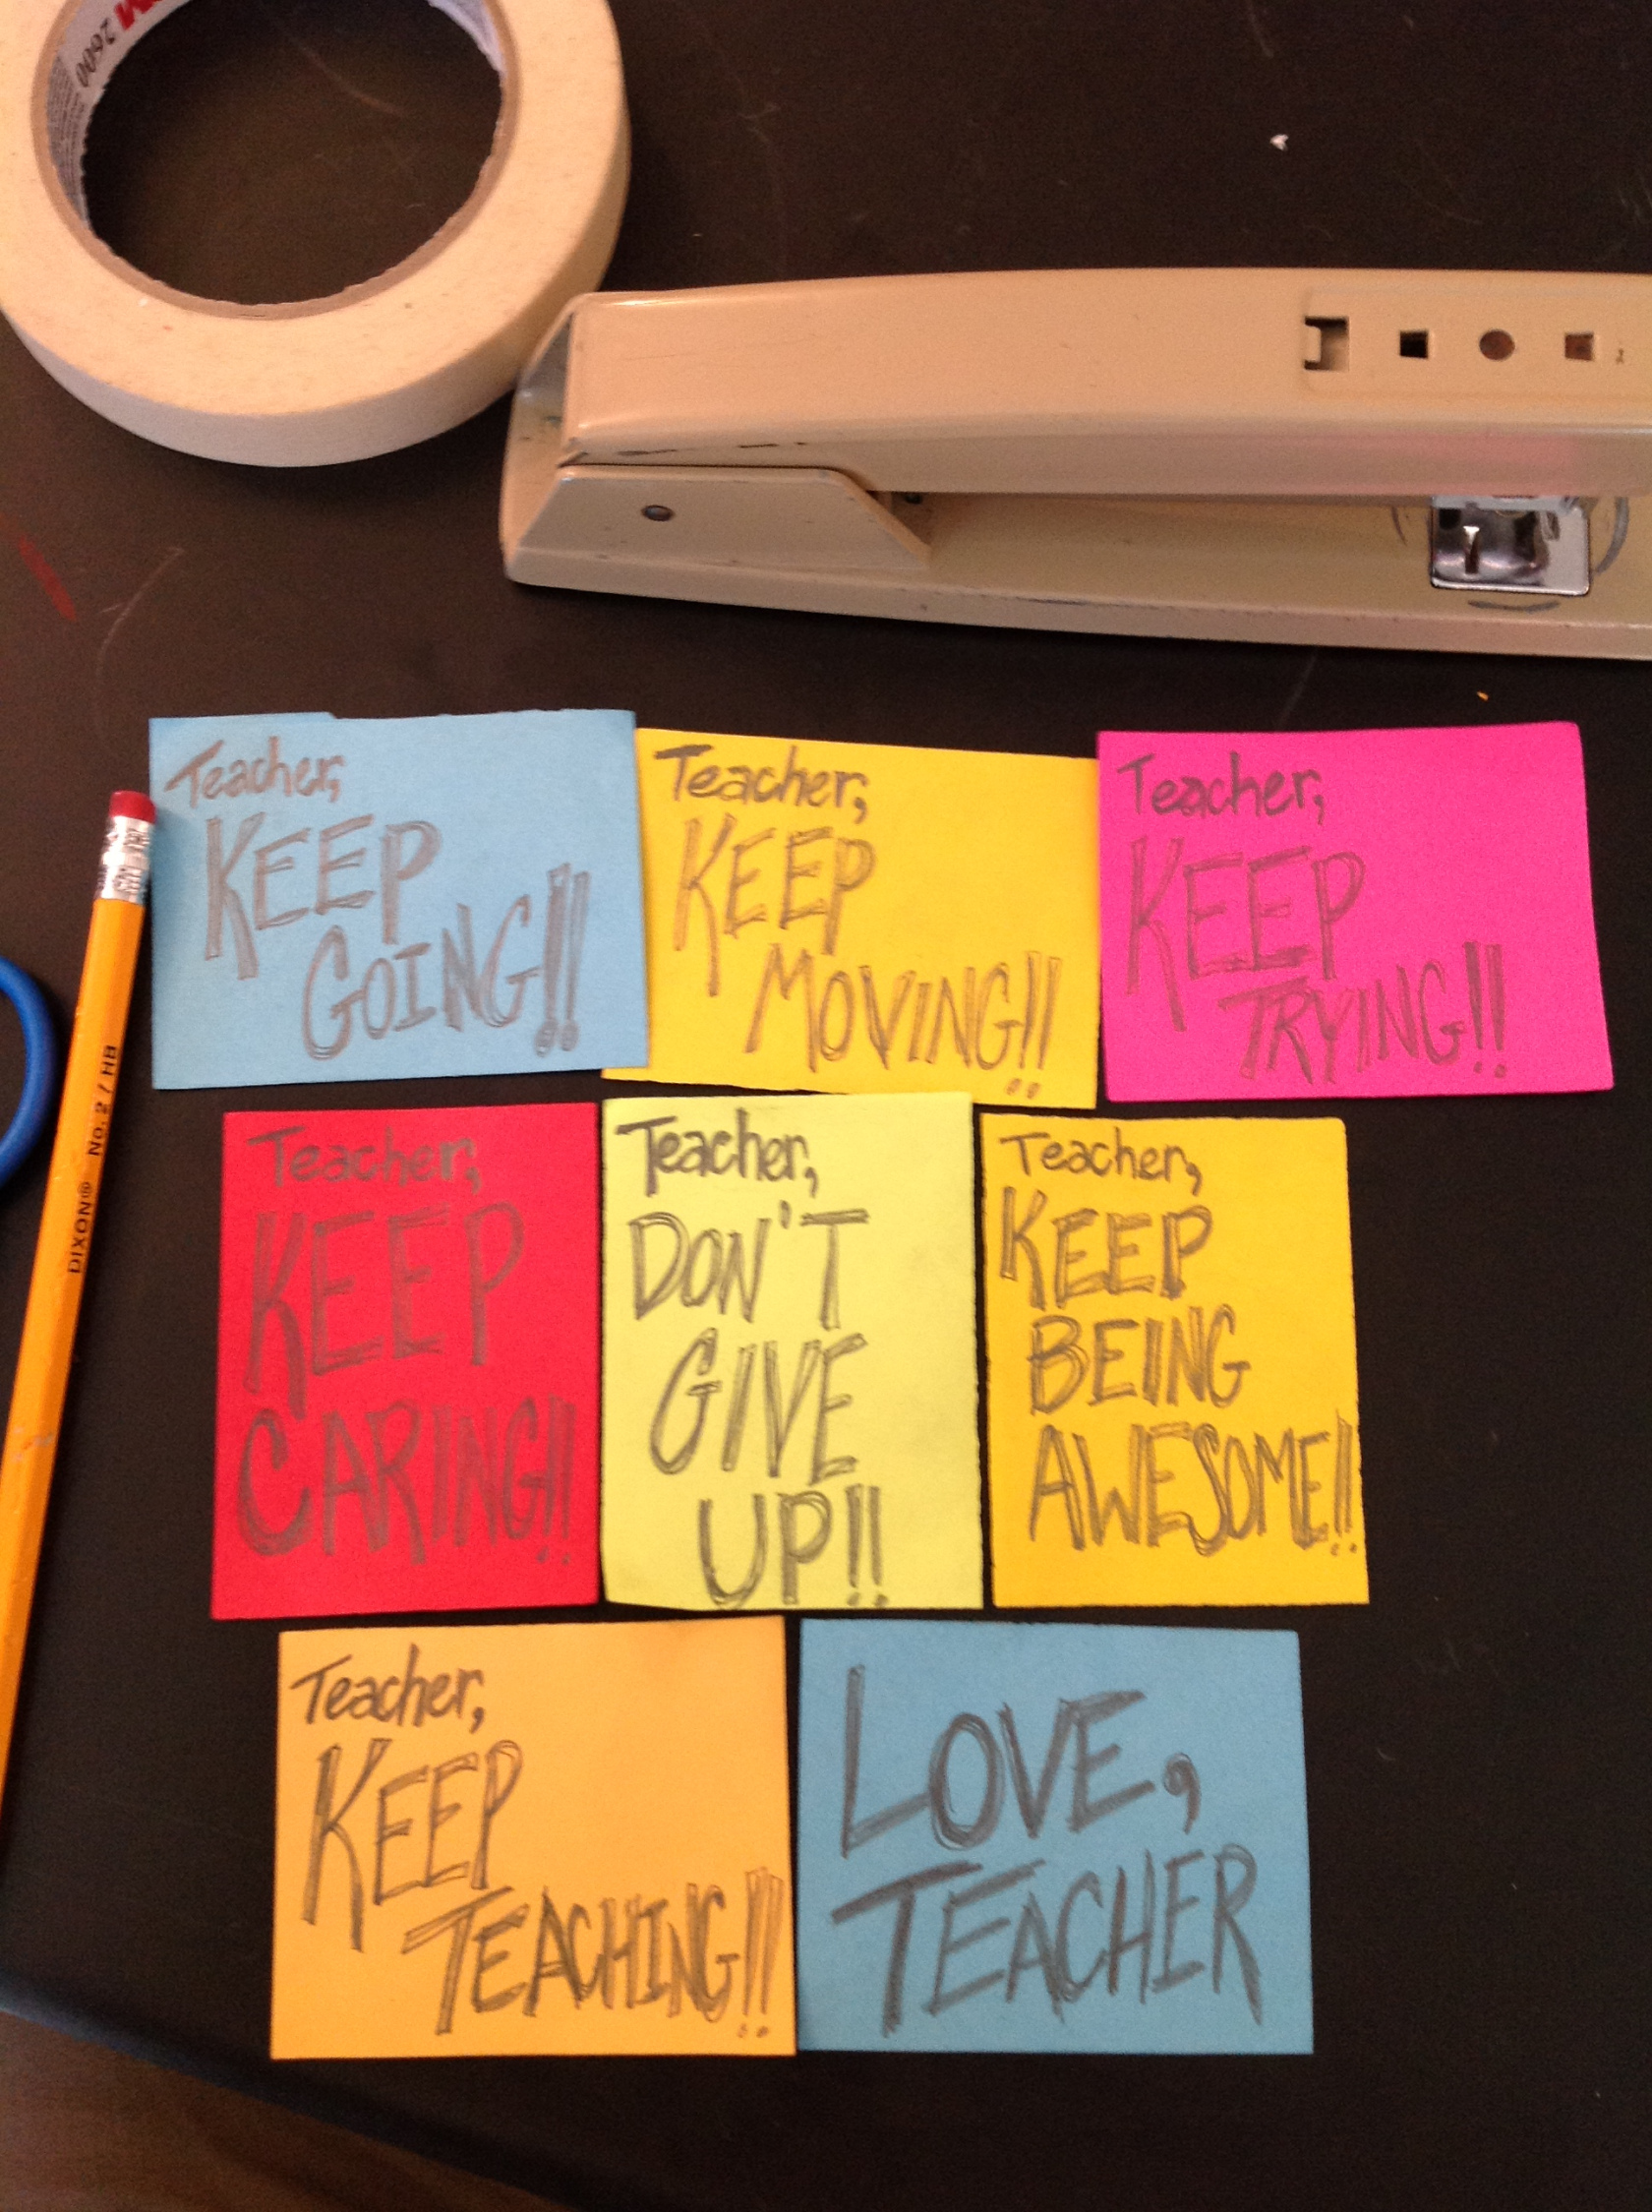 2600
Teacher,
KEEP
GOING!!
Teacher,
KEEP
MOVING!!
Teacher,
KEEP
TRYING!!
DIXON® No. 2 / HB
Teacher,
KEEP
CARING!!
Teacher,
DON'T
GIVE
UP!!
Teacher,
KEEP
BEING
AWESOME!!
Teacher,
KEEP
TEACHING!!
LOVE,
TEACHER